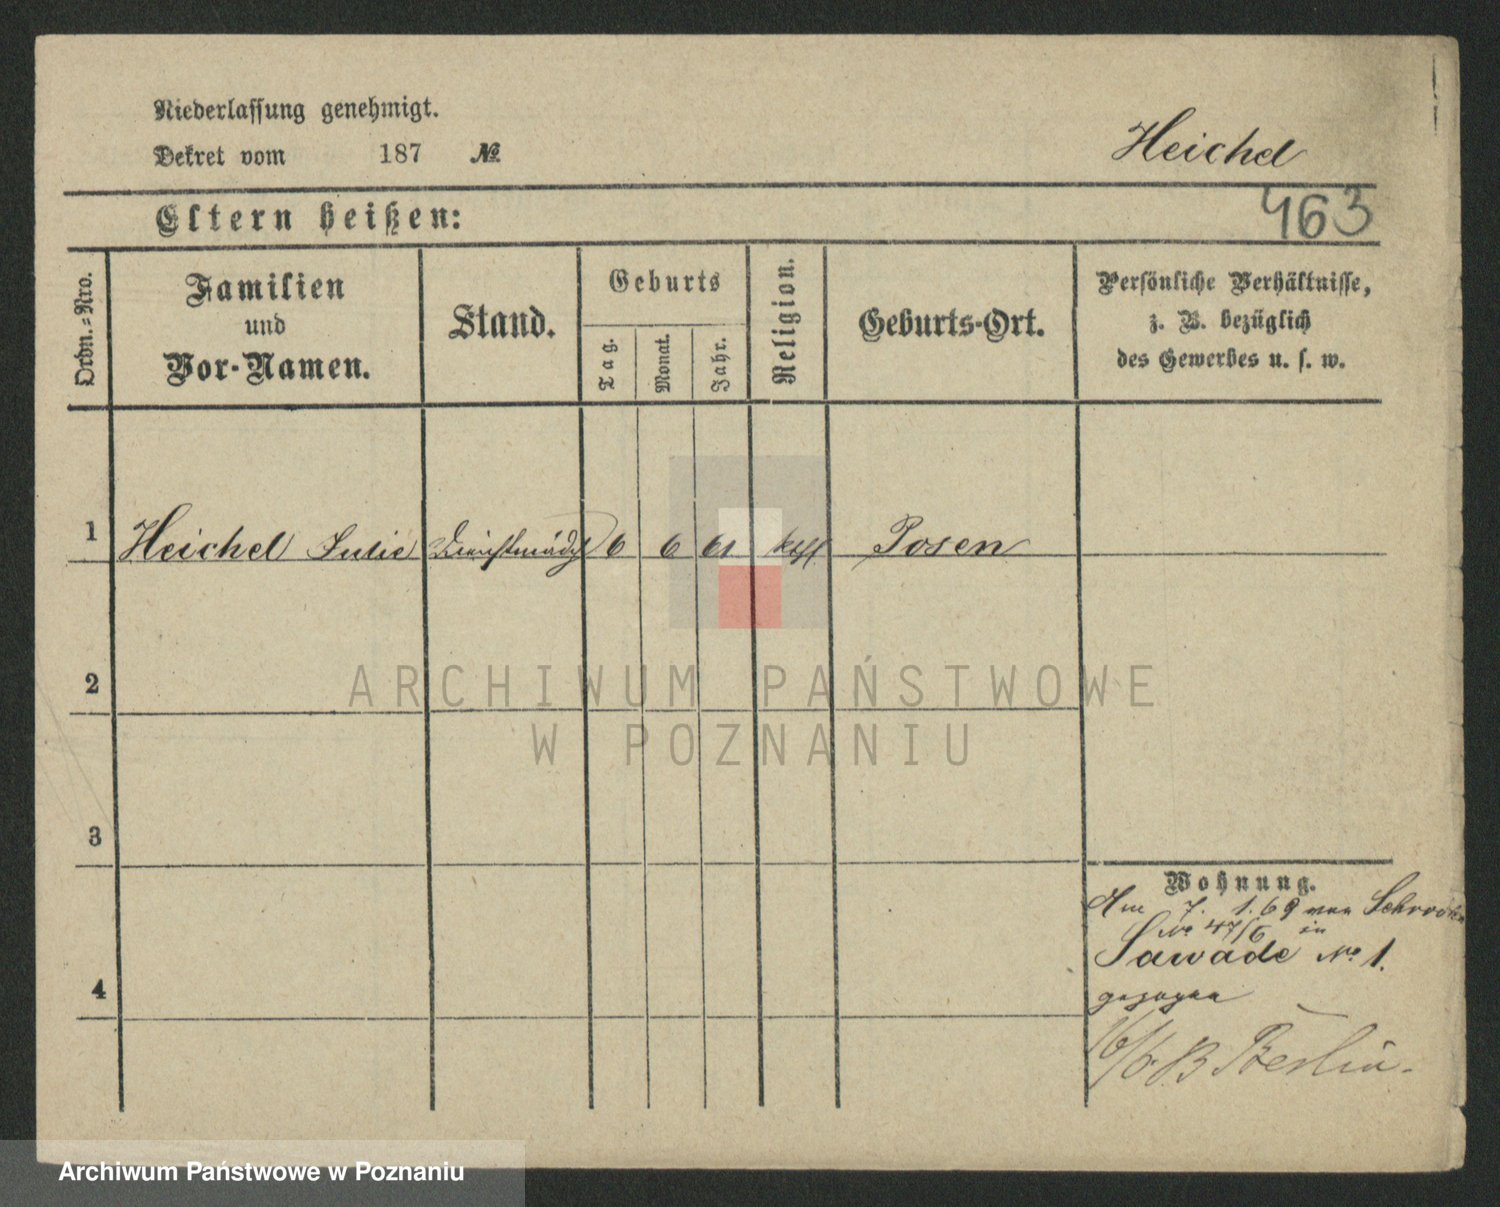 Niederlassung genehmigt.
Dekret vom 187 №
Heichel
463
Eltern heißen:
Ordn.=Nro.
Familien
und
Vor-Namen.
Stand.
Geburts
Tag.
Monat.
Jahr.
Religion.
Geburts-Ort.
Persönliche Verhältnisse,
z. B. bezüglich
des Gewerbes u. s. w.
1 Heichel Julie Dienstmädch 6 6 61 kath Posen
2
3
4
Wohnung.
Am 7. 1. 69 von
No 47/6 in
Sawade No 1.
gezogen
16/6. Berlin.
ARCHIWUM PAŃSTWOWE
W POZNANIU
Archiwum Państwowe w Poznaniu